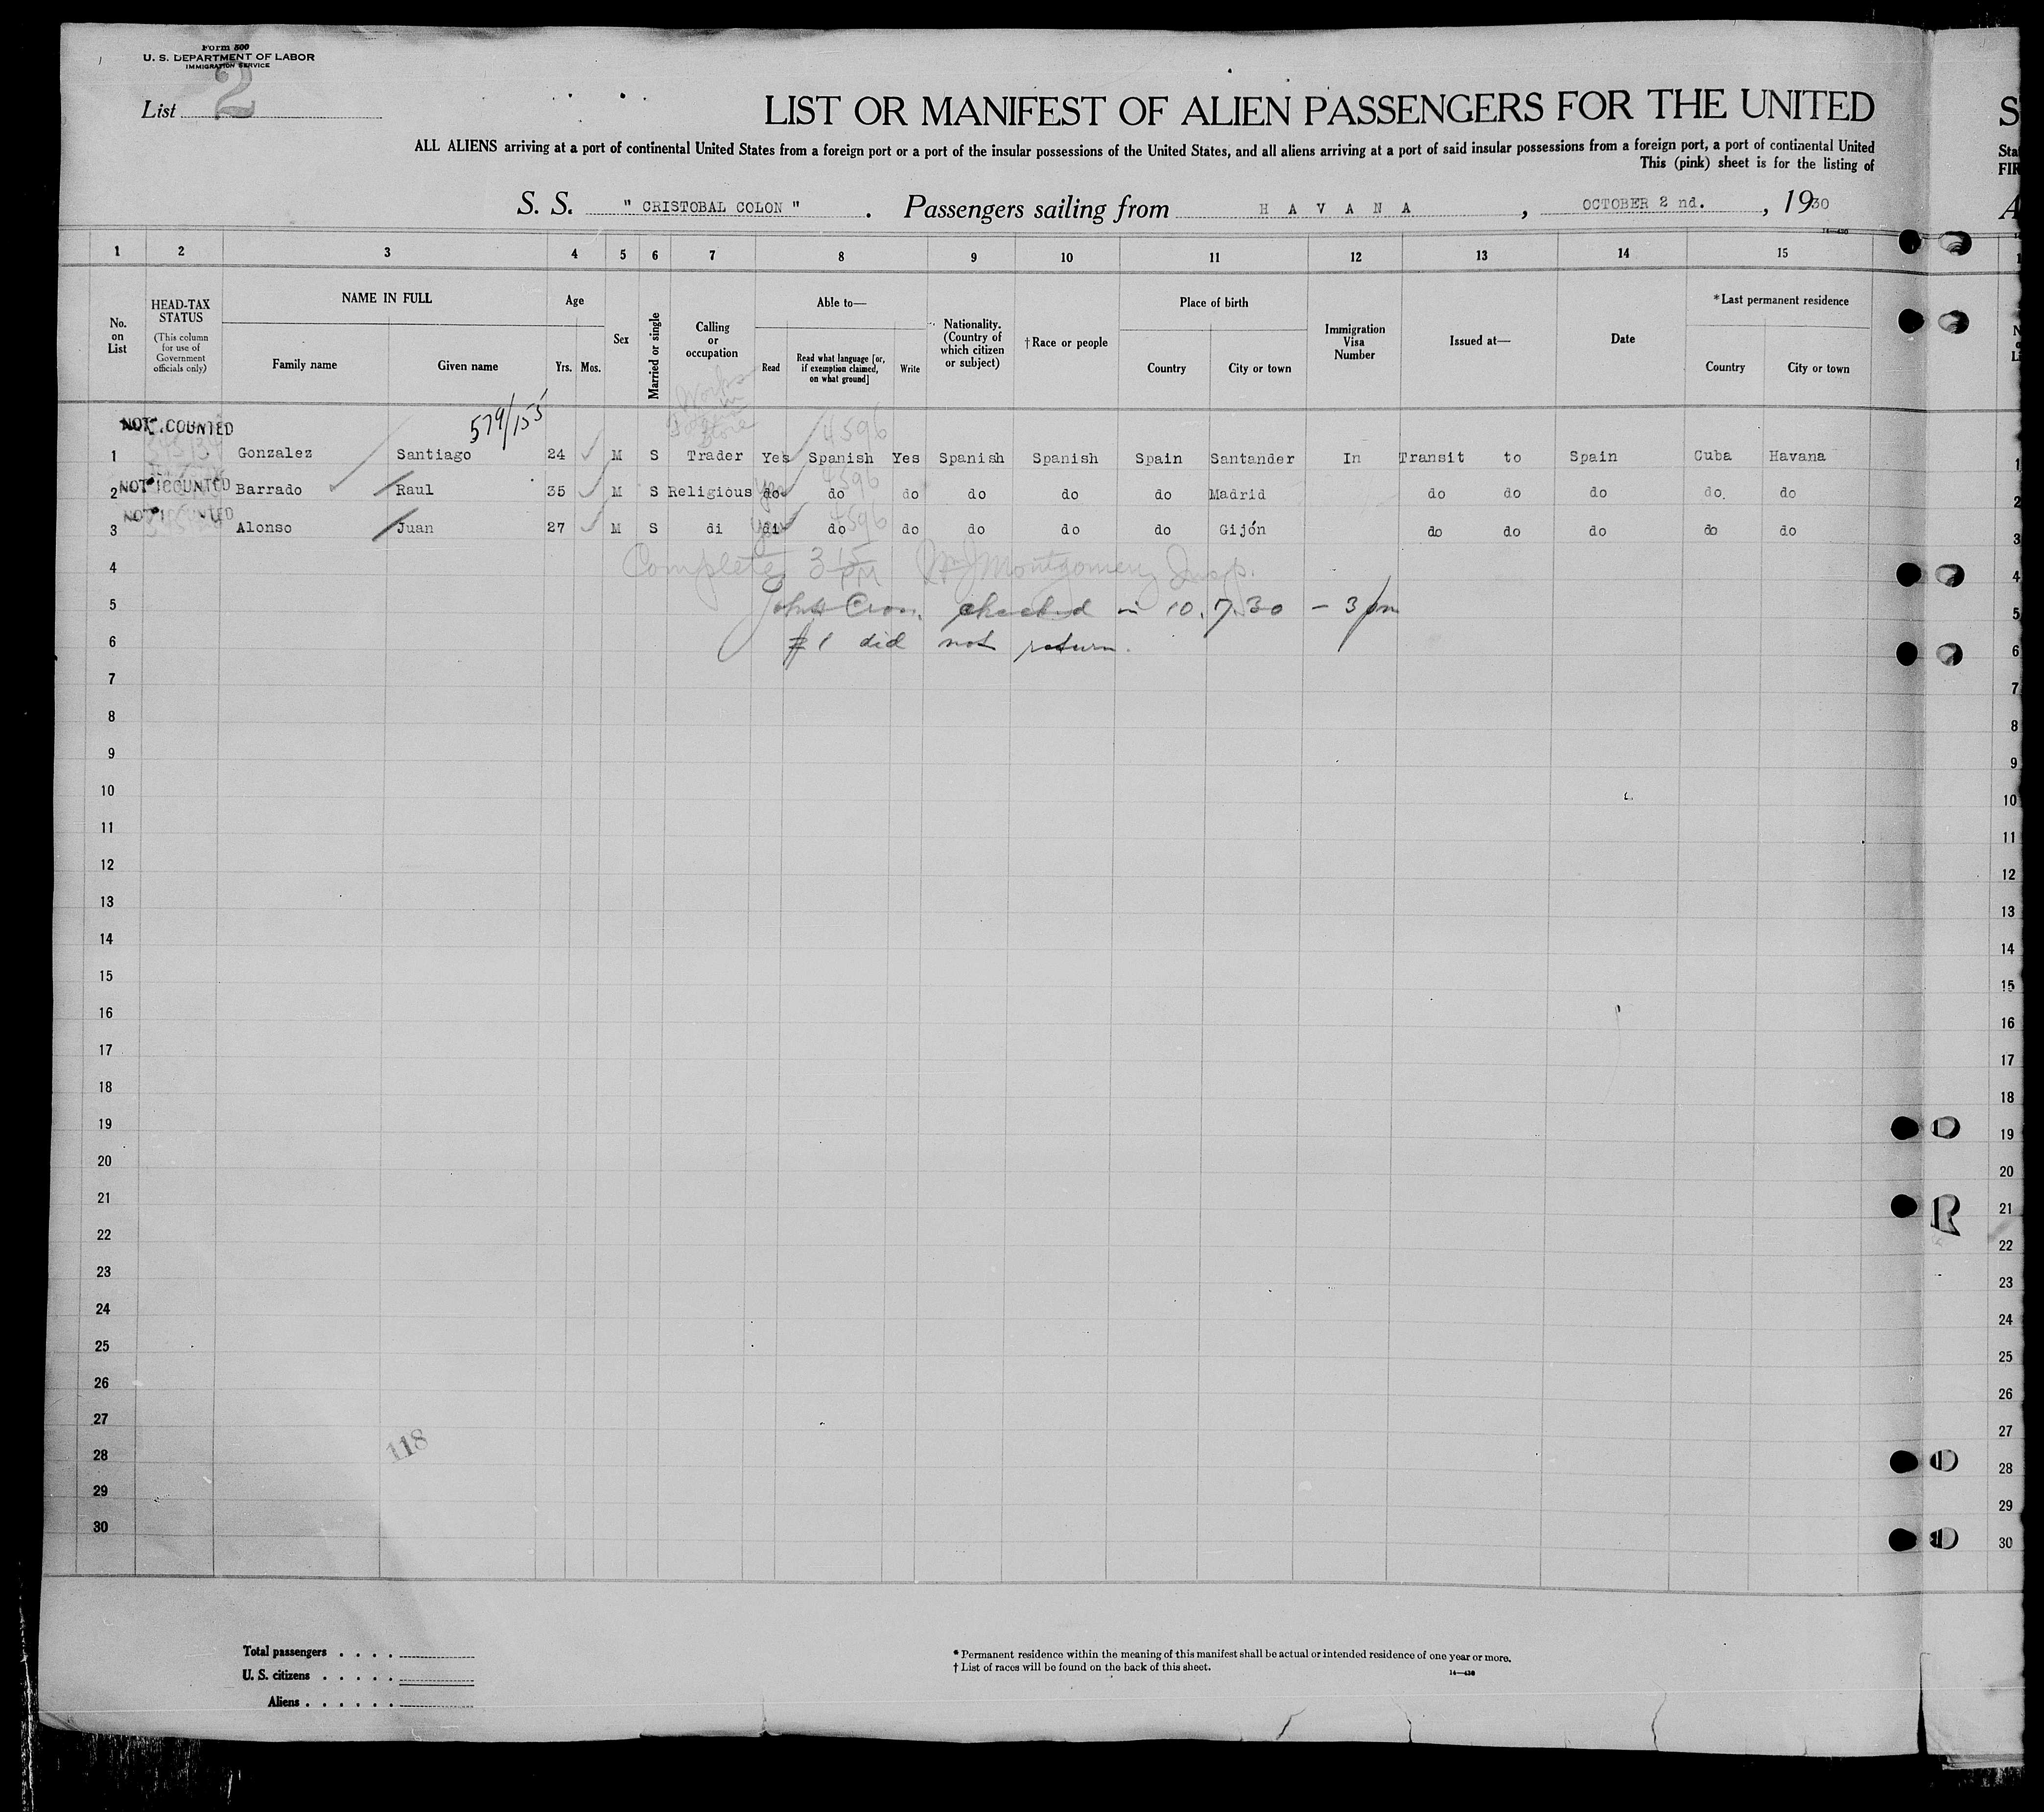 Form 500
U. S. DEPARTMENT OF LABOR
IMMIGRATION SERVICE
List 2
LIST OR MANIFEST OF ALIEN PASSENGERS FOR THE UNITED
S
ALL ALIENS arriving at a port of continental United States from a foreign port or a port of the insular possessions of the United States, and all aliens arriving at a port of said insular possessions from a foreign port, a port of continental United
Sta
This (pink) sheet is for the listing of
FIR
S. S. " CRISTOBAL COLON " . Passengers sailing from H A V A N A , OCTOBER 2 nd. , 1930
A
1 2 3 4 5 6 7 8 9 10 11 12 13 14 15
No. on List
HEAD-TAX STATUS (This column for use of Government officials only)
NAME IN FULL
Family name Given name
Age
Yrs. Mos.
Sex
Married or single
Calling or occupation
Able to—
Read Read what language [or, if exemption claimed, on what ground] Write
Nationality. (Country of which citizen or subject)
†Race or people
Place of birth
Country City or town
Immigration Visa Number
Issued at—
Date
*Last permanent residence
Country City or town
NOT COUNTED 579/155 4596
1 Gonzalez Santiago 24 M S Trader Yes Spanish Yes Spanish Spanish Spain Santander In Transit to Spain Cuba Havana 1
4596
2 NOT COUNTED Barrado Raul 35 M S Religious do do do do do do Madrid do do do do. do 2
NOT COUNTED 4596
3 Alonso Juan 27 M S di di do do do do do Gijón do do do do do 3
4 Complete 3 15 PM Montgomery Insp. 4
5 checked in 10.7.30 - 3 pm 5
6 #1 did not return. 6
7 7
8 8
9 9
10 10
11 11
12 12
13 13
14 14
15 15
16 16
17 17
18 18
19 19
20 20
21 21
22 22
23 23
24 24
25 25
26 26
27 27
118
28 28
29 29
30 30
Total passengers . . . .
U. S. citizens . . . . .
Aliens . . . . . .
* Permanent residence within the meaning of this manifest shall be actual or intended residence of one year or more.
† List of races will be found on the back of this sheet.
14—430